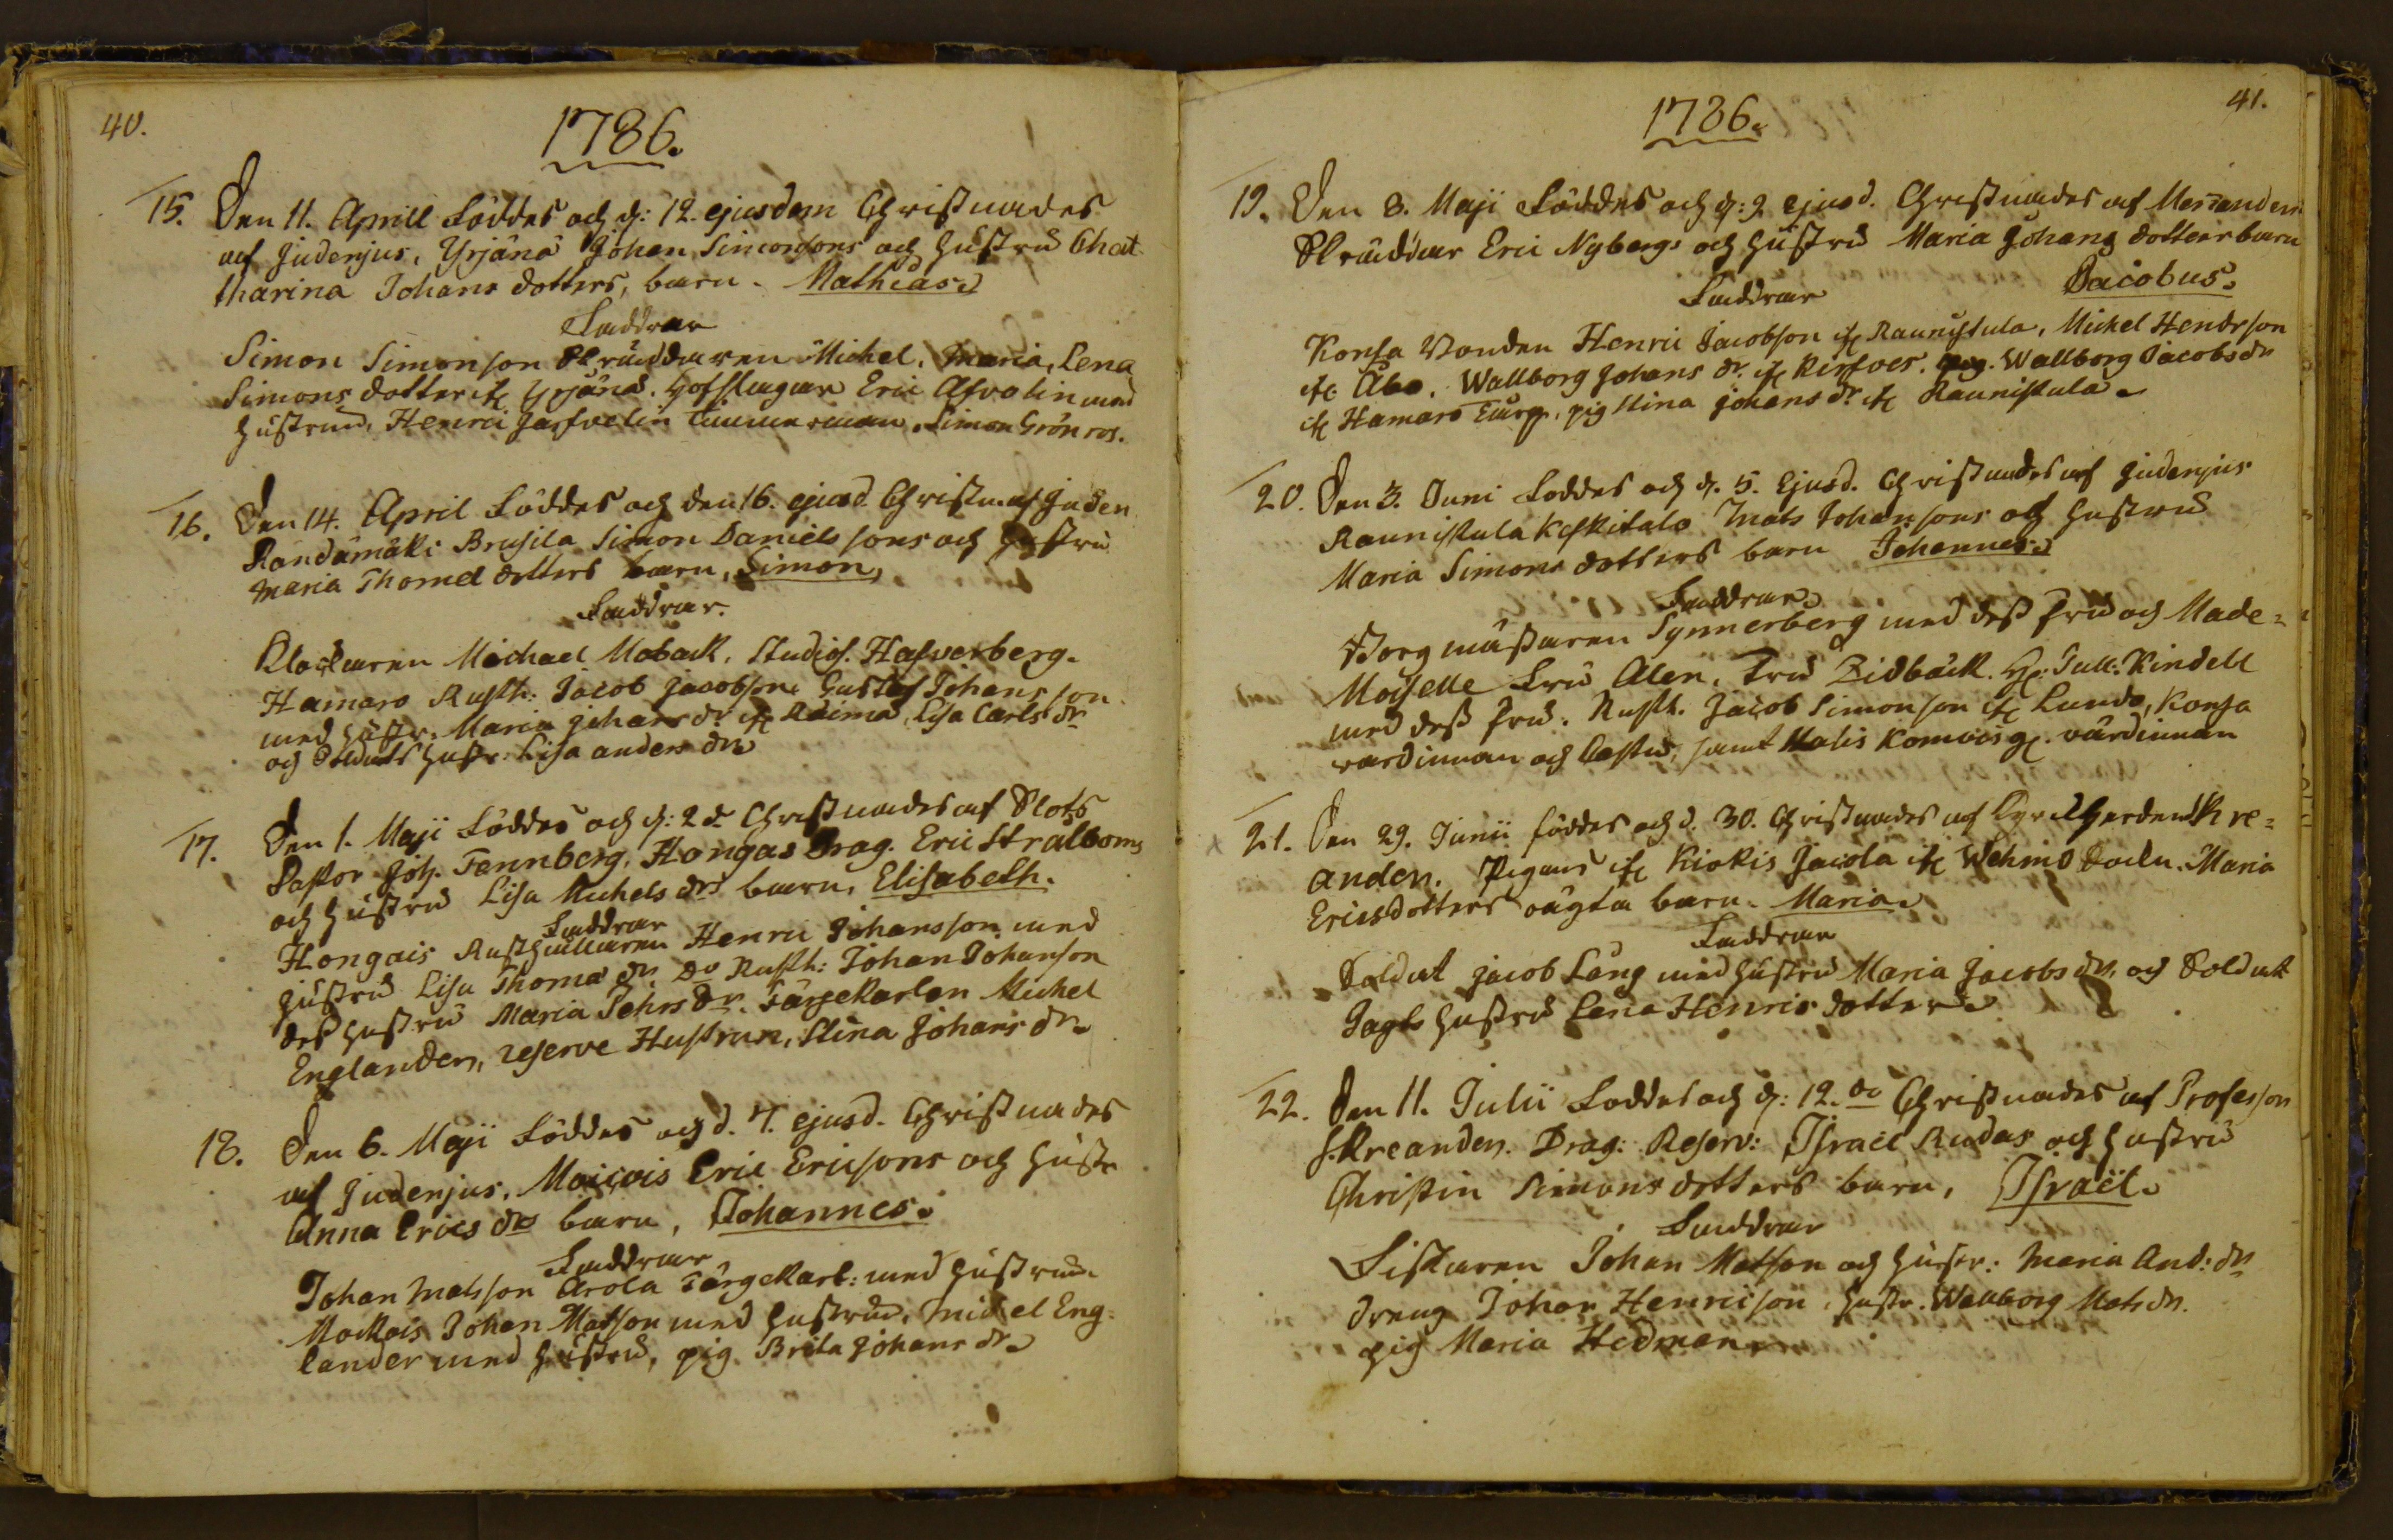 40.
1786.
15. Den 11. Aprill Föddes och d: 12. ejusdem Christnades
af Judenjus, Yrjänä Johan Simonsons och hustru Chat
tharina Johans dotters, barn. Mathias.
Faddrar
Simon Simonson Skräddaren Michel, Maria, Lena
Simons dotter if: Yrjänä. Hofslagar Eric Afvolin med
hustrun, Henric Jerfvelin Timmerman. Simon Grönros.
16. Den 14. April Föddes och den 16. ejusd Christn. af Juden
Randämäki Brusila Simon Danielssons och hustru
Maria Thomæ dotters barn, Simon,
Faddrar.
Klockaren Michael Moback, Studios. Hasverberg.
Hamaro Rusth: Jacob Jacobson. Gustaf Johansson
med hustr. Maria Johans dr. if: Räimä, Lisa Carls dr
och Soldats hustr. Lisa anders dr
17. Den 1. Maji Föddes och d: 2 dr Christnades af Slots
Pastor Joh. Tennberg, Hongas Drag. Eric Stralboms
och hustru Lisa Michels drs barn, Elisabeth.
Faddrar
Hongais Rusthållaren Henric Johansson med
hustru Lisa Thomæ dr. Do Rusth: Johan Johanson
dess hustru Maria Pehrs dr. Färjekarlen Michel
Englander, reserve Hustrun, Stina Johans dr
18. Den 6. Maji Föddes och d. 7. ejusd. Christnades
af Judenjus, Moisois Eric Ericsons och hustr
Anna Erics drs barn, Johannes.
Faddrar
Johan Matsson Arola Färgekarl: med hustrun
Mockois Johan Matson med hustrun, Michel Eng-
lander med hustru, pig. Brita Johans dr
41.
1786.
19. Den 8. Maji Föddes och d: 9 ejusd. Christnades af Meriander
Skräddar Eric Nybergs och hustru Maria Johans dotters barn
Jacobus.
Faddrar
Konsa Bonden Henric Jacobson if: Raunistula, Michel Hendrson
if: Åbo. Wallborg Johans dr. if: Kirstoes. pig. Wallborg Jacobs dr
if: Hamaro Färg. pig Stina Johans dr. if: Raunistula
20. Den 3. Juni Foddes och d. 5. Ejusd. Christnades af Judenjus
Raunistula Keskitalo Mats Johanssons och hustru
Maria Simons dotters barn Johannes.
Faddrar
Borgmästaren Synnerberg med dess fru och Made=
Moiselle Fru Alen, Fru Zidbäck. H: Tull: Kindell
med dess fru. Rusth. Jacob Simonson if: Lundo, Konsa
vardinnan och Caster, samt Halis Komois g: värdinnan
21. Den 29. Junii föddes och d. 30. Christnades af Kyrckherden Kre=
ander. Pigans if: Kiokis Jacola if: Wehmo Sockn. Maria
Ericsdotters oägta barn. Maria.
Faddrar
Soldat Jacob Lång med hustru Maria Jacobs dr. och Soldat
Jagts hustru Lena Henrics dotter
22. Den 11. Julii Foddes och d: 12. do Christnades af Professor
J. Kreander. Drag: Reserv: Israel Rudas och hustru
Christin Simons dotters barn, Israel.
Faddrar
Fiskaren Johan Matson och hustr: Maria And: dr
dreng Johan Henricson, hustr. Wallborg Mats dr.
pig Maria Hedman